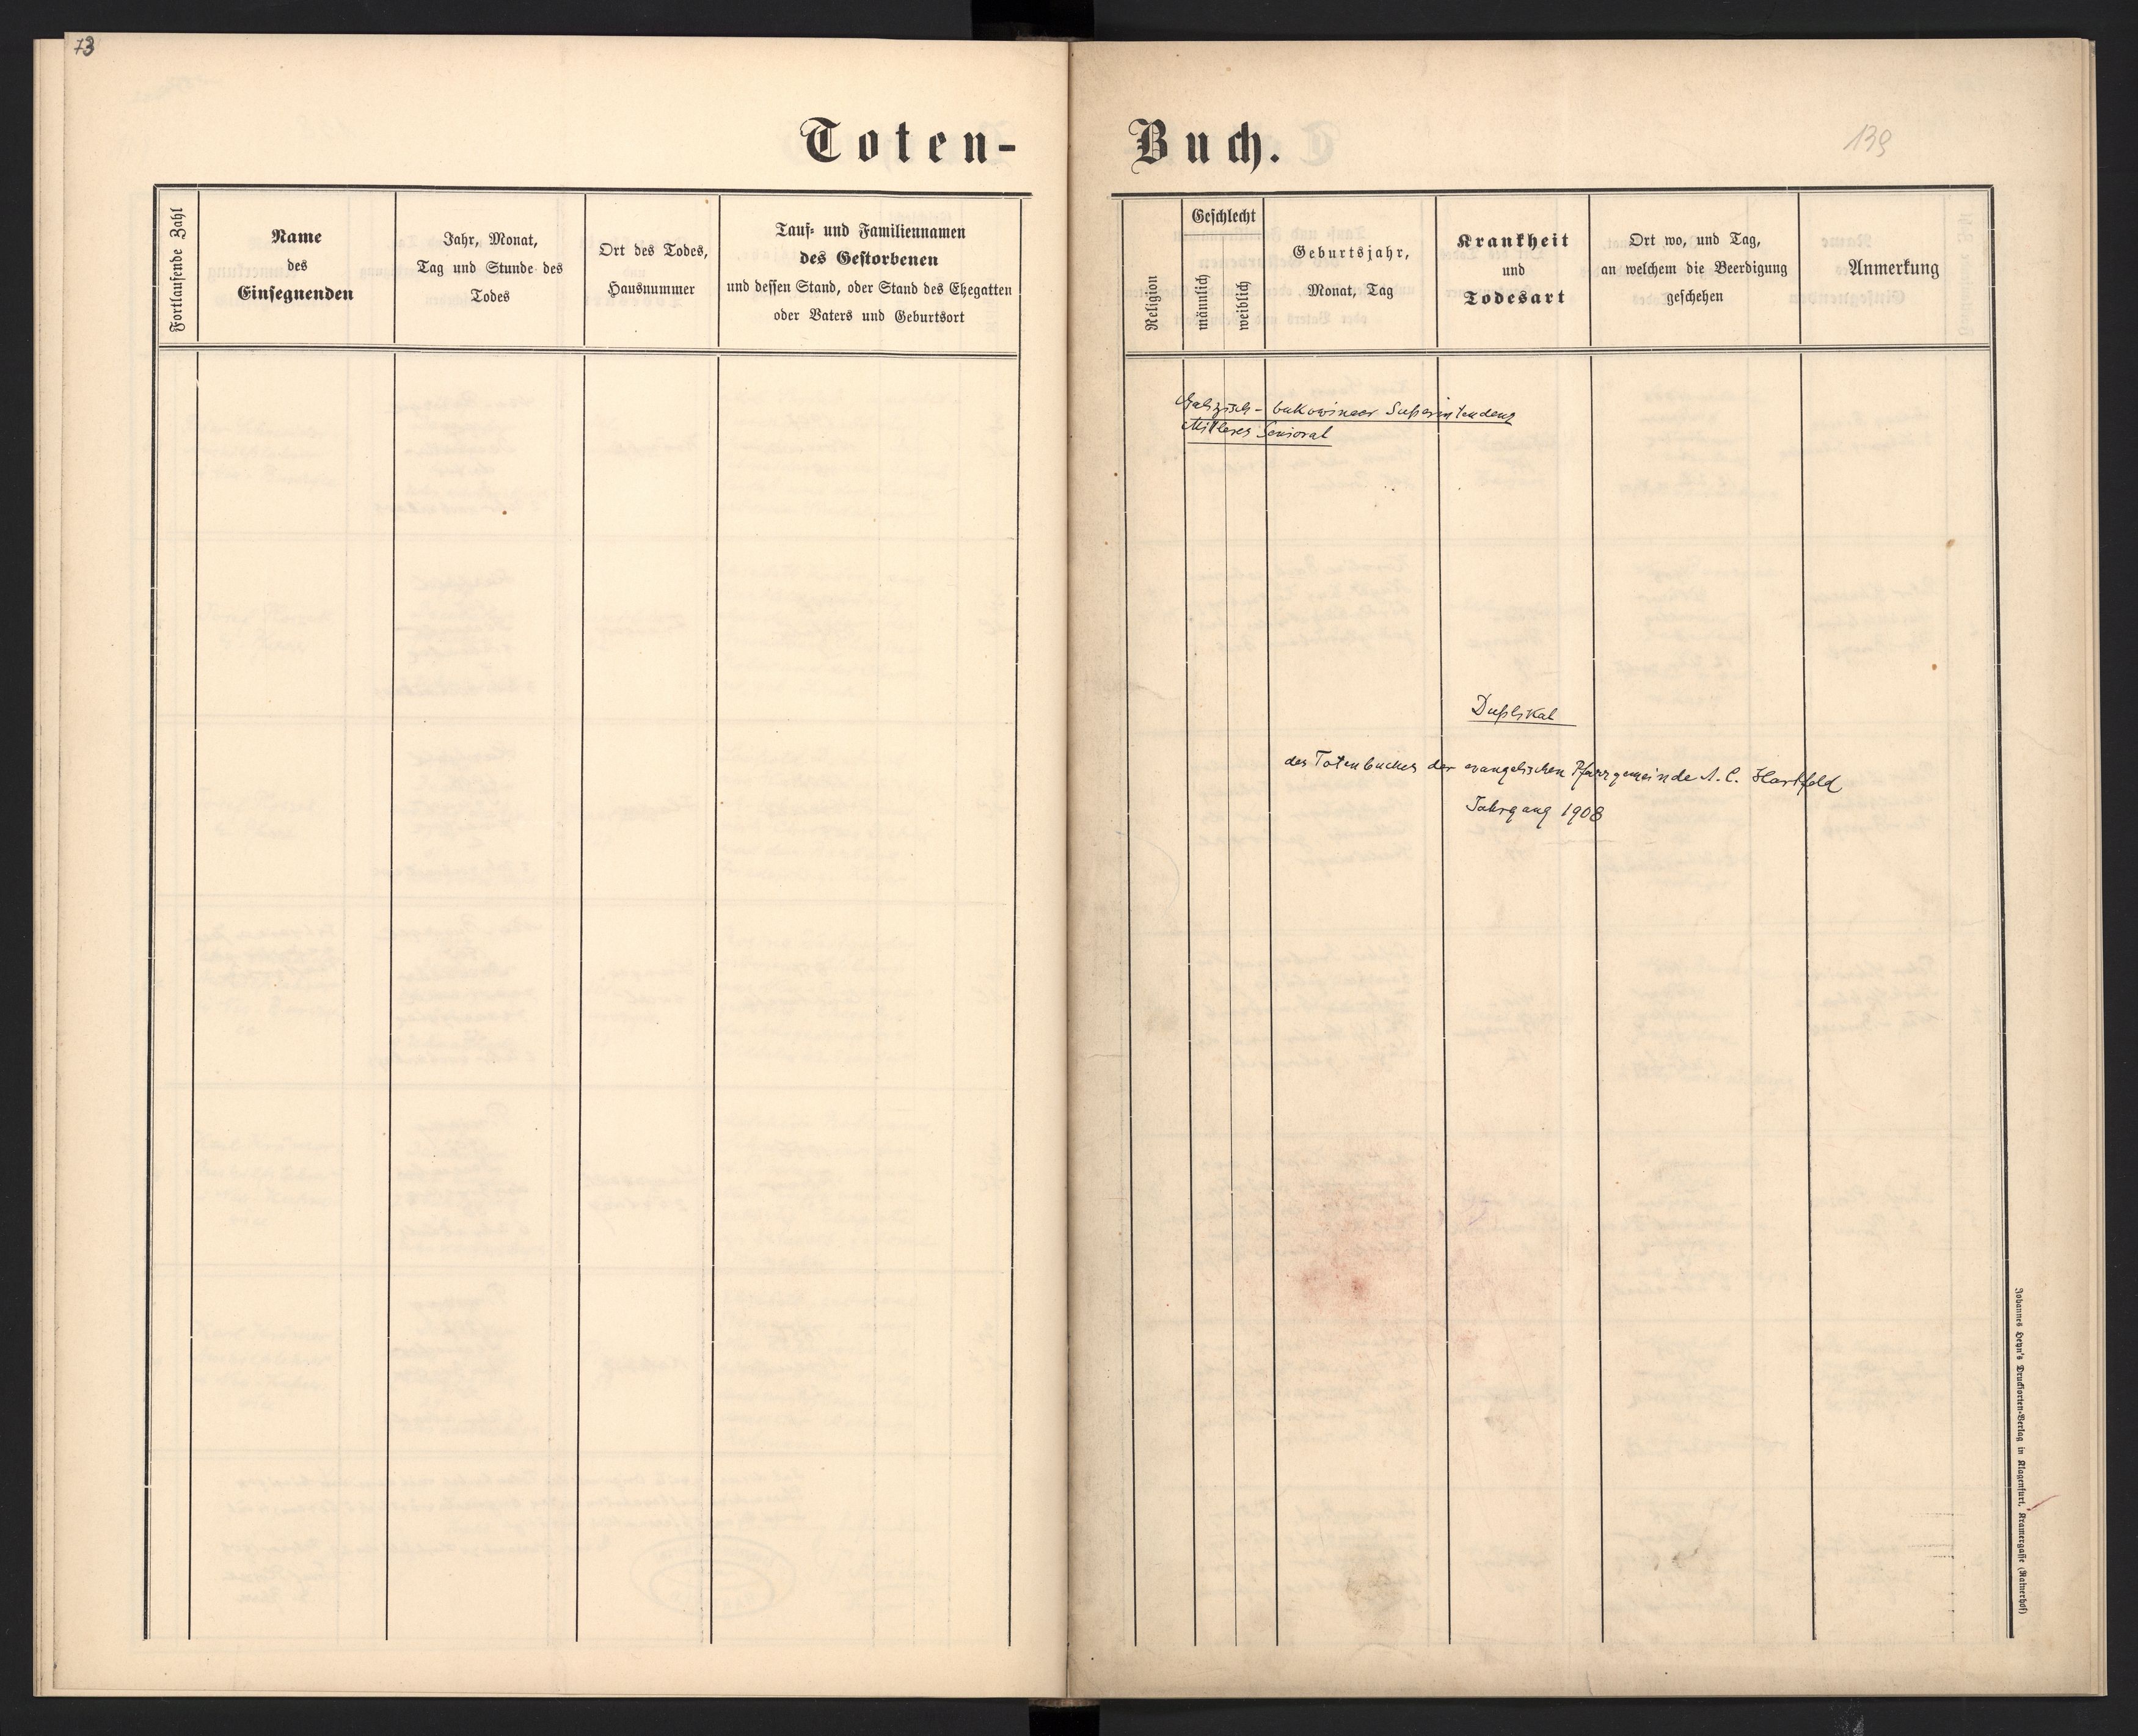 73
Toten-
Fortlaufende Zahl
Name
des
Einsegnenden
Jahr, Monat,
Tag und Stunde des
Todes
Ort des Todes,
Hausnummer
Tauf- und Familiennamen
des Gestorbenen
und dessen Stand, oder Stand des Ehegatten
oder Vaters und Geburtsort
Buch.
139
Religion
Geschlecht
männlich
weiblich
Geburtsjahr,
Monat, Tag
Krankheit
und
Todesart
Ort wo, und Tag,
an welchem die Beerdigung
geschehen
Anmerkung
Galizisch-bukowinaer Superintendenz
Mittleres Seniorat
Duplikat
des Totenbuches der evangelischen Pfarrgemeinde A. C. Hartfeld
Jahrgang 1908
Johannes Heyn's Drucksorten-Verlag in Klagenfurt, Kramergasse (Rainerhof)